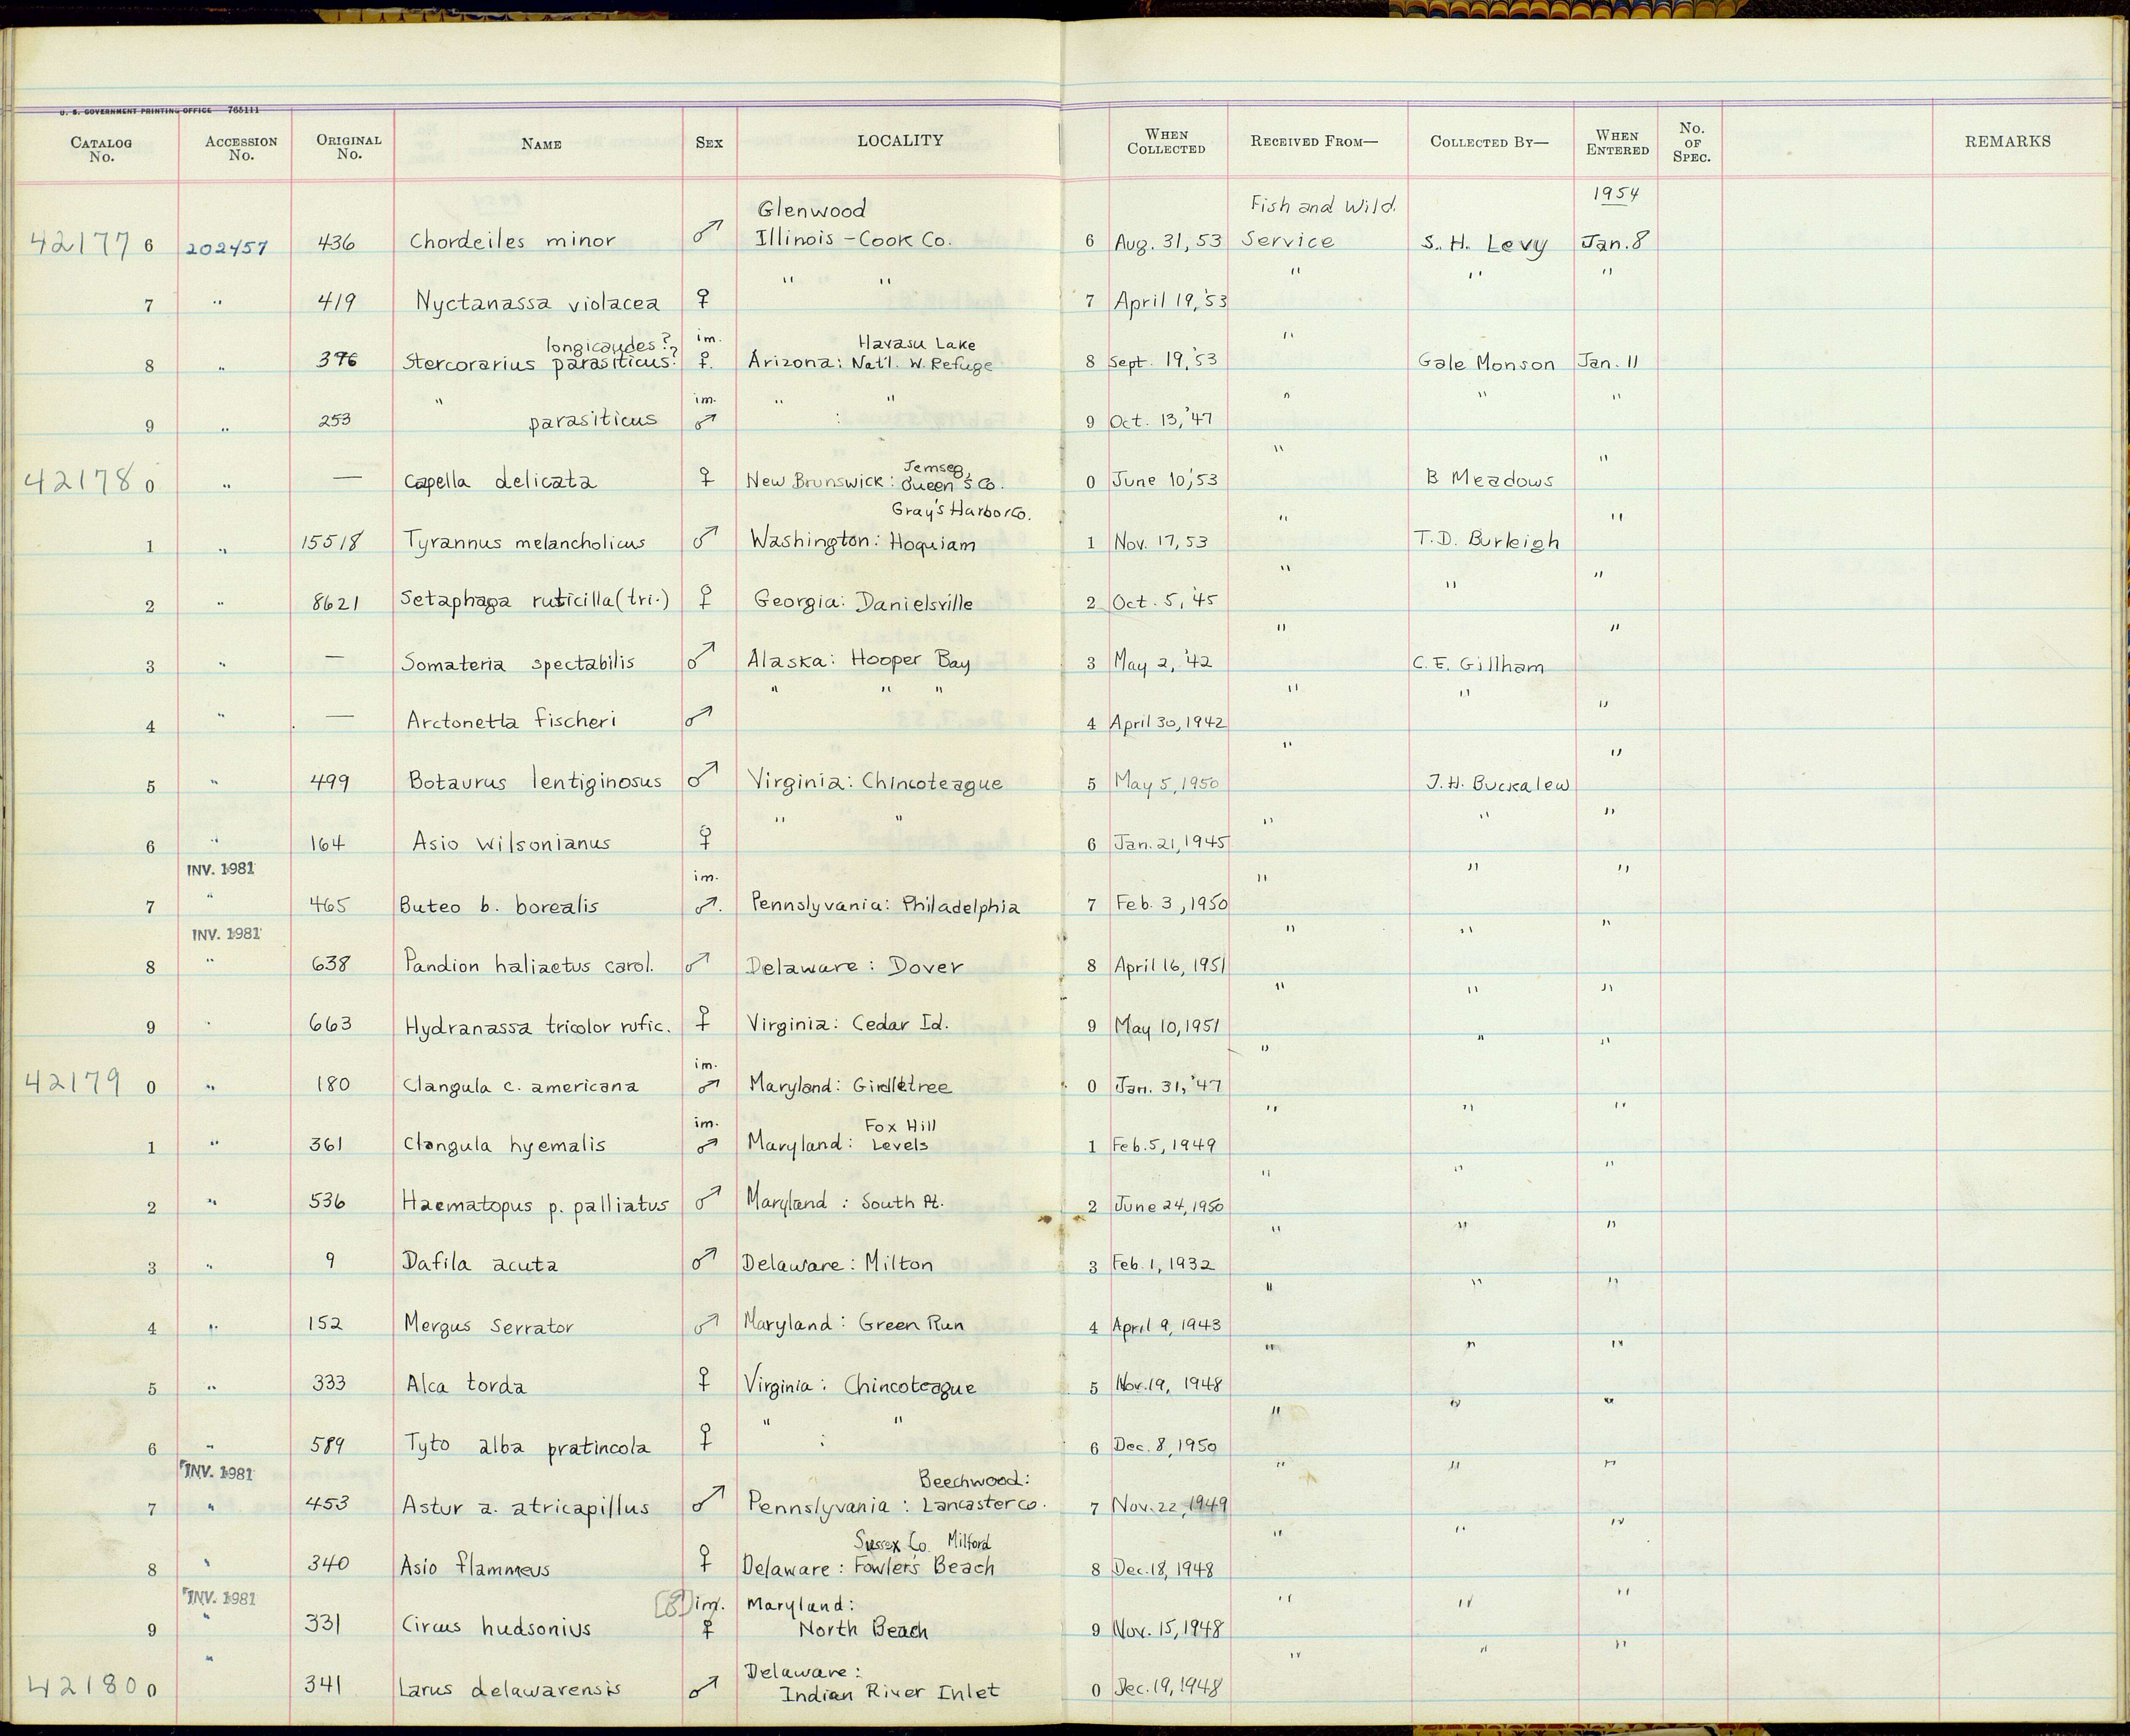 U. S. GOVERNMENT PRINTING OFFICE 765111
CATALOG No. ACCESSION No. ORIGINAL No. NAME SEX LOCALITY WHEN COLLECTED RECEIVED FROM— COLLECTED BY— WHEN ENTERED No. OF SPEC. REMARKS
1954
Glenwood Fish and Wild.
42177 6 202457 436 Chordeiles minor ♂ Illinois - Cook Co. 6 Aug. 31, 53 Service S. H. Levy Jan. 8
" " " " "
7 " 419 Nyctanassa violacea ♀ 7 April 19, '53
longicaudes ? im. Havasu Lake "
8 " 376 Stercorarius parasiticus? ♀. Arizona: Nat'l. W. Refuge 8 Sept. 19, '53 Gale Monson Jan. 11
" im. " " " " "
9 " 253 parasiticus ♂ : 9 Oct. 13, '47
Jemseg, " "
42178 0 " — Capella delicata ♀ New Brunswick: Queen's Co. 0 June 10, '53 B Meadows
Gray's Harbor Co. " "
1 " 15518 Tyrannus melancholicus ♂ Washington: Hoquiam 1 Nov. 17, 53 T. D. Burleigh
" " "
2 " 8621 Setaphaga ruticilla (tri.) ♀ Georgia: Danielsville 2 Oct. 5, '45
" "
3 " — Somateria spectabilis ♂ Alaska: Hooper Bay 3 May 2, '42 C. E. Gillham
" " " " " "
4 " — Arctonetta fischeri ♂ 4 April 30, 1942
" "
5 " 499 Botaurus lentiginosus ♂ Virginia: Chincoteague 5 May 5, 1950 J. H. Buckalew
" " " " "
6 " 164 Asio wilsonianus ♀ 6 Jan. 21, 1945
INV. 1981 im. " " "
7 " 465 Buteo b. borealis ♂. Pennslyvania: Philadelphia 7 Feb. 3, 1950
INV. 1981 " " "
8 " 638 Pandion haliaetus carol. ♂ Delaware: Dover 8 April 16, 1951
" " "
9 " 663 Hydranassa tricolor rufic. ♀ Virginia: Cedar Id. 9 May 10, 1951
im. " " "
42179 0 " 180 Clangula c. americana ♂ Maryland: Girdletree 0 Jan. 31, '47
im. Fox Hill " " "
1 " 361 Clangula hyemalis ♂ Maryland: Levels 1 Feb. 5, 1949
" " "
2 " 536 Haematopus p. palliatus ♂ Maryland: South Pt. 2 June 24, 1950
" " "
3 " 9 Dafila acuta ♂ Delaware: Milton 3 Feb. 1, 1932
" " "
4 " 152 Mergus Serrator ♂ Maryland: Green Run 4 April 9, 1943
" " "
5 " 333 Alca torda ♀ Virginia: Chincoteague 5 Nov. 19, 1948
" " " " "
6 " 589 Tyto alba pratincola ♀ : 6 Dec. 8, 1950
INV. 1981 Beechwood: " " "
7 " 453 Astur a. atricapillus ♂ Pennslyvania: Lancaster Co. 7 Nov. 22, 1949
Sussex Co. Milford " " "
8 " 340 Asio flammeus ♀ Delaware: Fowler's Beach 8 Dec. 18, 1948
INV. 1981 im. Maryland: " " "
9 " 331 Circus hudsonius ♀ North Beach 9 Nov. 15, 1948
" Delaware: " " "
42180 0 341 Larus delawarensis ♂ Indian River Inlet 0 Dec. 19, 1948